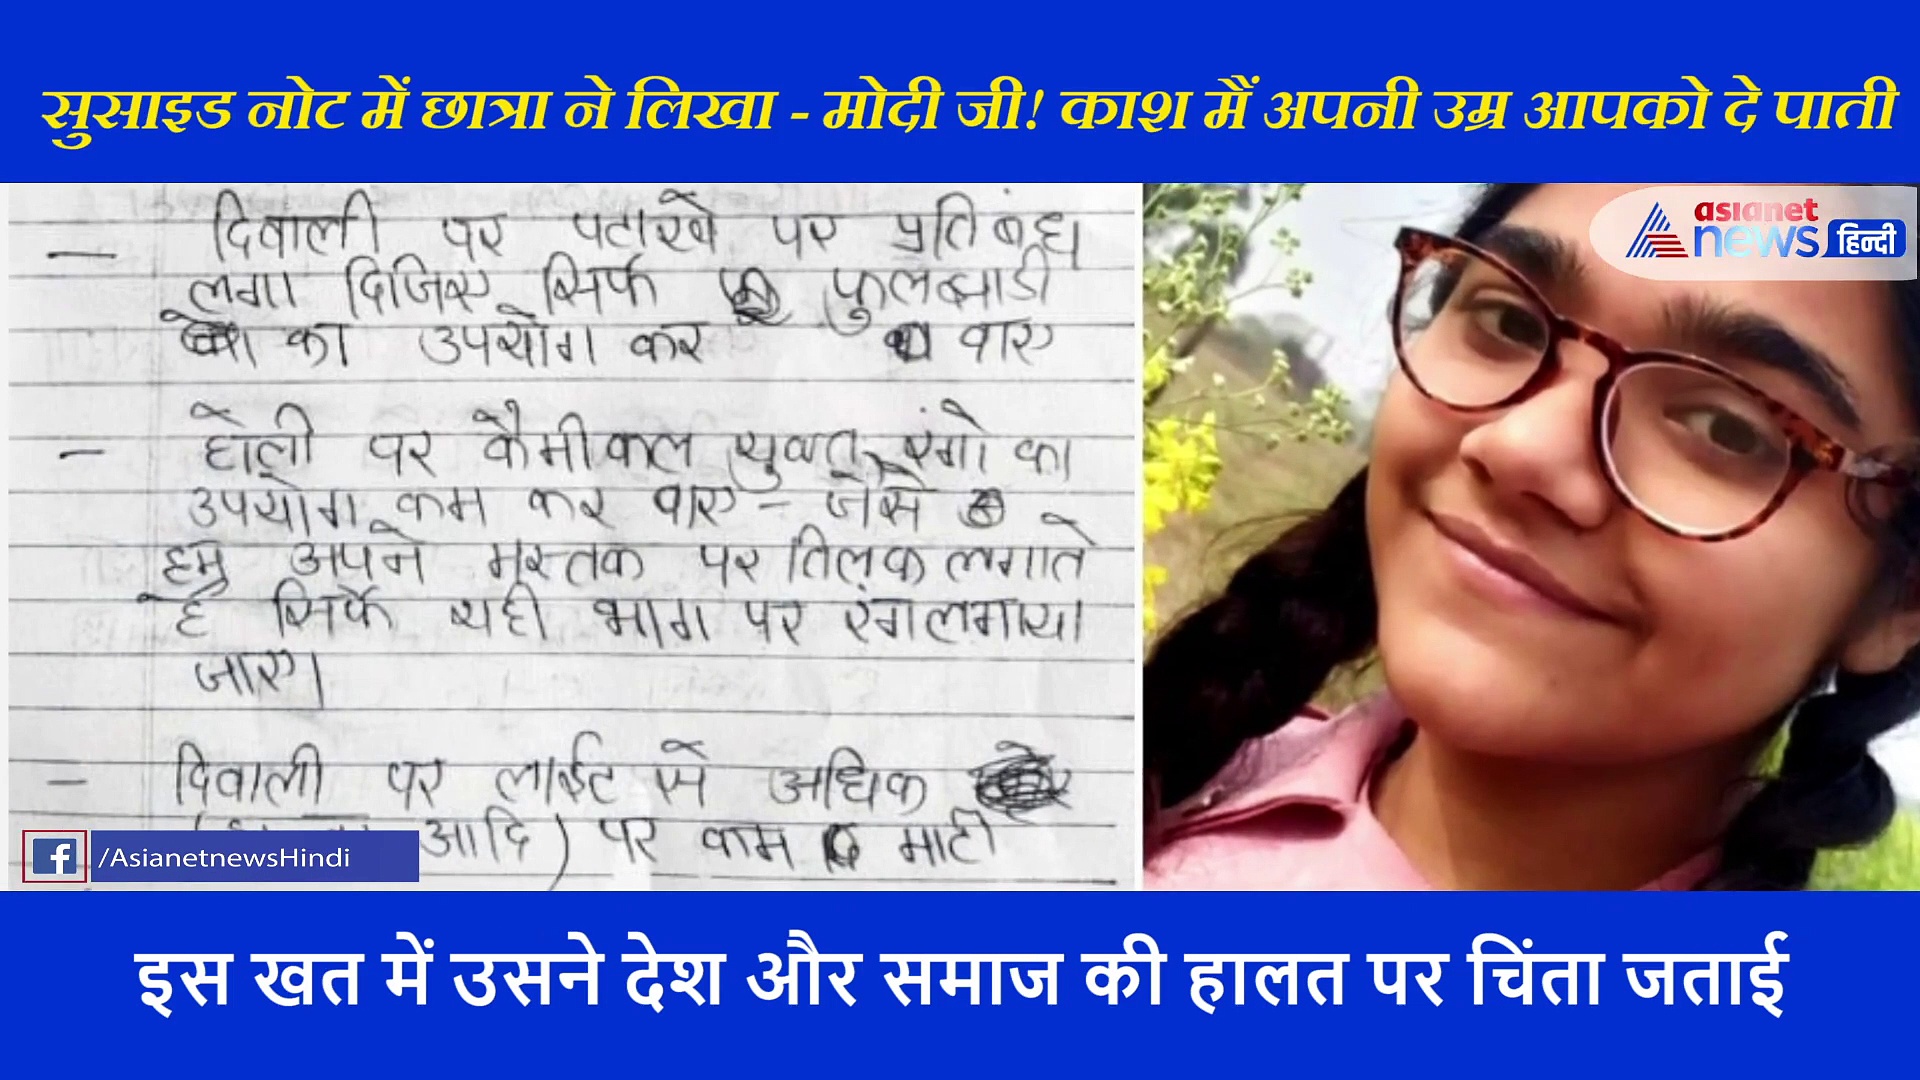 सुसाइड नोट में छात्रा ने लिखा - मोदी जी! काश मैं अपनी उम्र आपको दे पाती
asianet
news हिन्दी
— दिवाली पर पटाखे पर प्रतिबंध
लगा दिजिए सिर्फ फुलझाडी
का उपयोग कर वाए
— होली पर कैमीकल युक्त रंगो का
उपयोग कम कर वाए - जैसे
हम अपने मस्तक पर तिलक लगाते
है सिर्फ यही भाग पर रंग लगाया
जाए।
— दिवाली पर लाईट से अधिक
आदि) पर कम माटी
f /AsianetnewsHindi
इस खत में उसने देश और समाज की हालत पर चिंता जताई